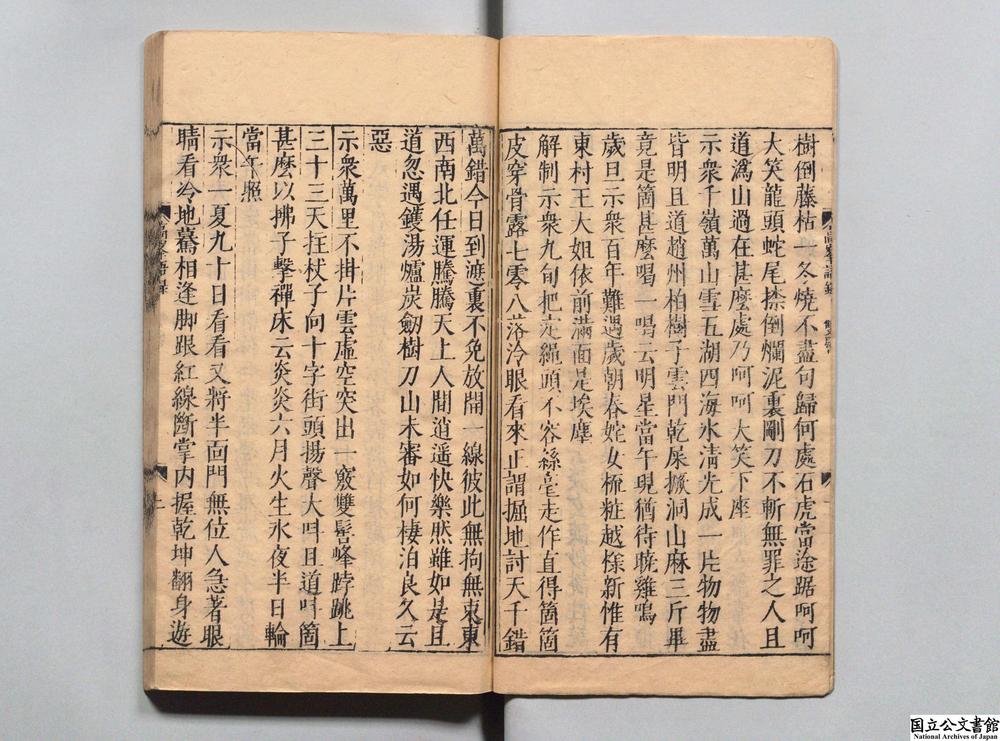 樹倒藤枯一冬燒不盡句歸何處石虎當途踞呵呵
大笑龍頭蛇尾捺倒爛泥裏剛刀不斬無罪之人且
道溈山過在甚麼處乃呵呵大笑下座
示衆千嶺萬山雪五湖四海水清光成一片物物盡
皆明且道趙州柏樹子雲門乾屎撅洞山麻三斤畢
竟是箇甚麼喝一喝云明星當午現猶待曉雞鳴
歲旦示衆百年難遇歲朝春姹女梳粧越㨾新惟有
東村王大姐依前滿面是埃塵
解制示衆九旬把定繩頭不容絲毫走作直得箇箇
皮穿骨露七零八落冷眼看來正謂掘地討天千錯
萬錯今日到遮裏不免放開一線彼此無拘無束東
西南北任運騰騰天上人間逍遥快樂然雖如是且
道忽遇鑊湯爐炭劒樹刀山未審如何棲泊良久云
惡
示衆萬里不掛片雲虛空突出一竅雙髻峰脖跳上
三十三天拄杖子向十字街頭揚聲大呌且道呌箇
甚麼以拂子擊禪床云炎炎六月火生氷夜半日輪
當午照
示衆一夏九十日看看又將半面門無位人急著眼
睛看冷地驀相逢脚跟紅線斷掌内握乾坤翻身遊
国立公文書館
National Archives of Japan